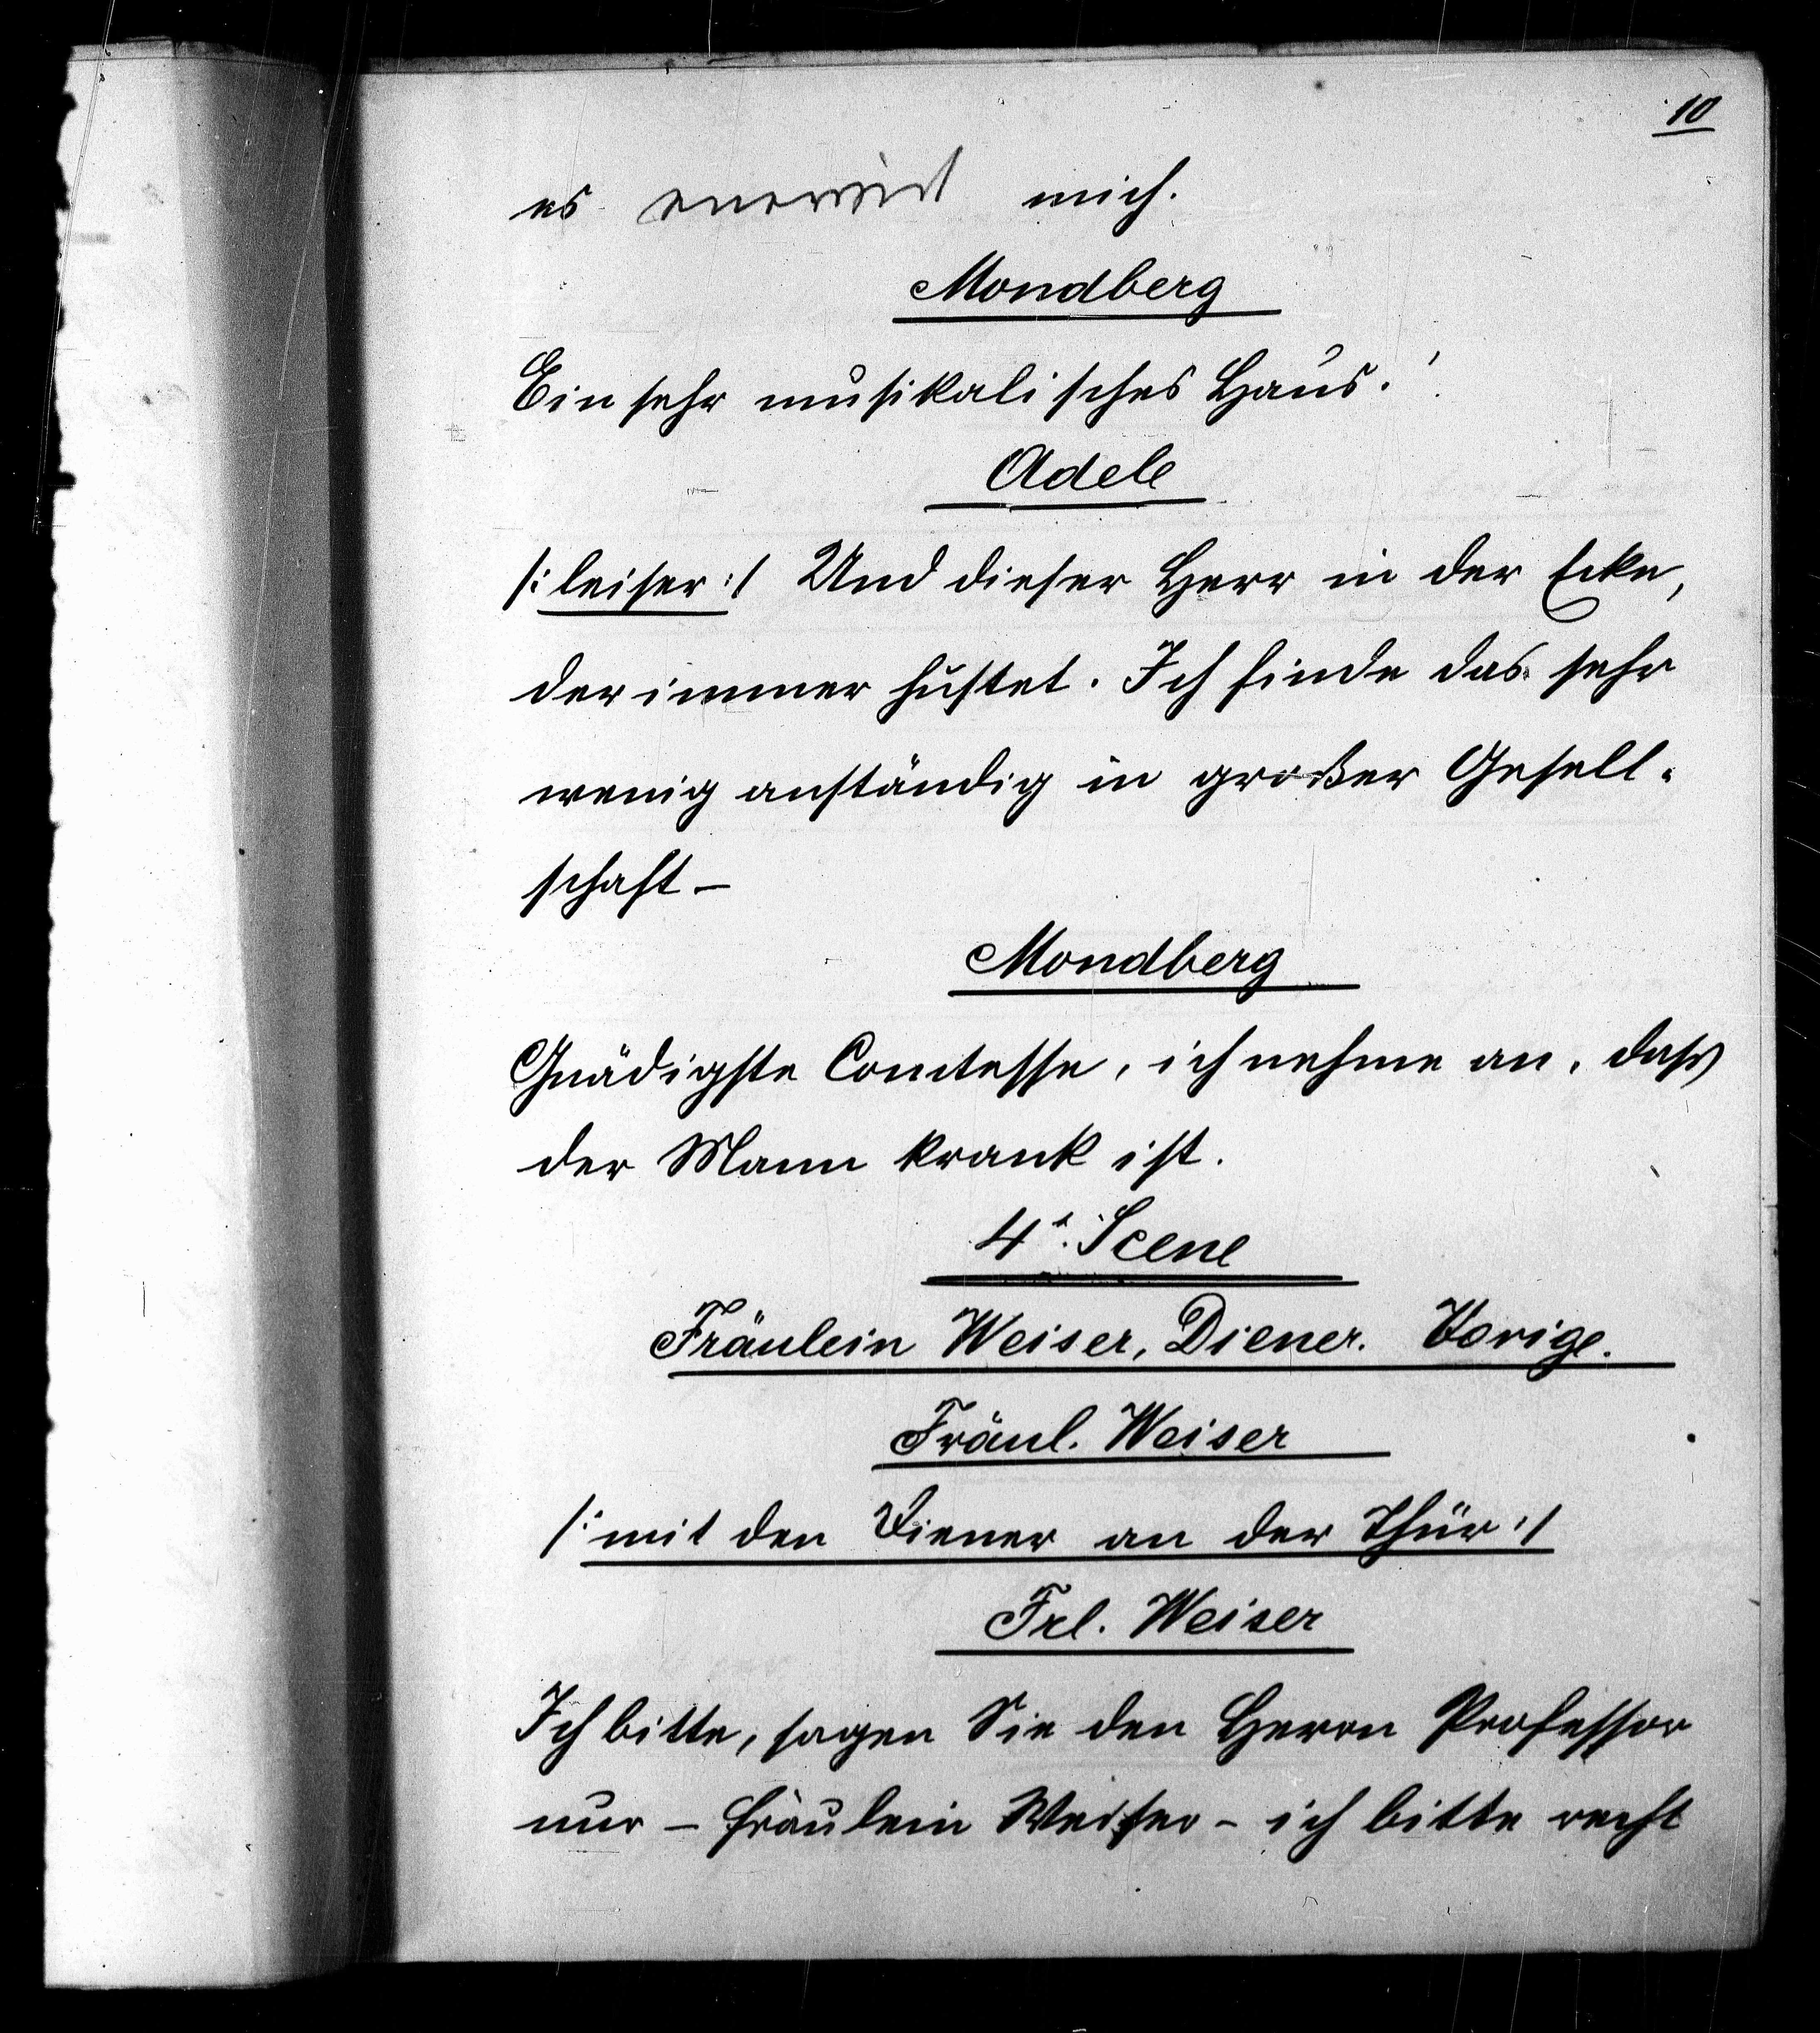 10
es enervirt mich.
Mondberg
Ein sehr musikalisches Haus.!
Adele
/: leiser :/ Und dieser Herr in der Ecke,
der immer hustet. Ich finde das sehr
wenig anständig in großer Gesell-
schaft –
Mondberg
Gnädigste Comtesse, ich nehme an, dass
der Mann krank ist.
4. Scene
Fräulein Weiser, Diener. Vorige.
Fräul. Weiser
/: mit den Diener an der Thür :/
Frl. Weiser
Ich bitte, sagen Sie den Herrn Professor
nur – Fräulein Weiser – ich bitte recht